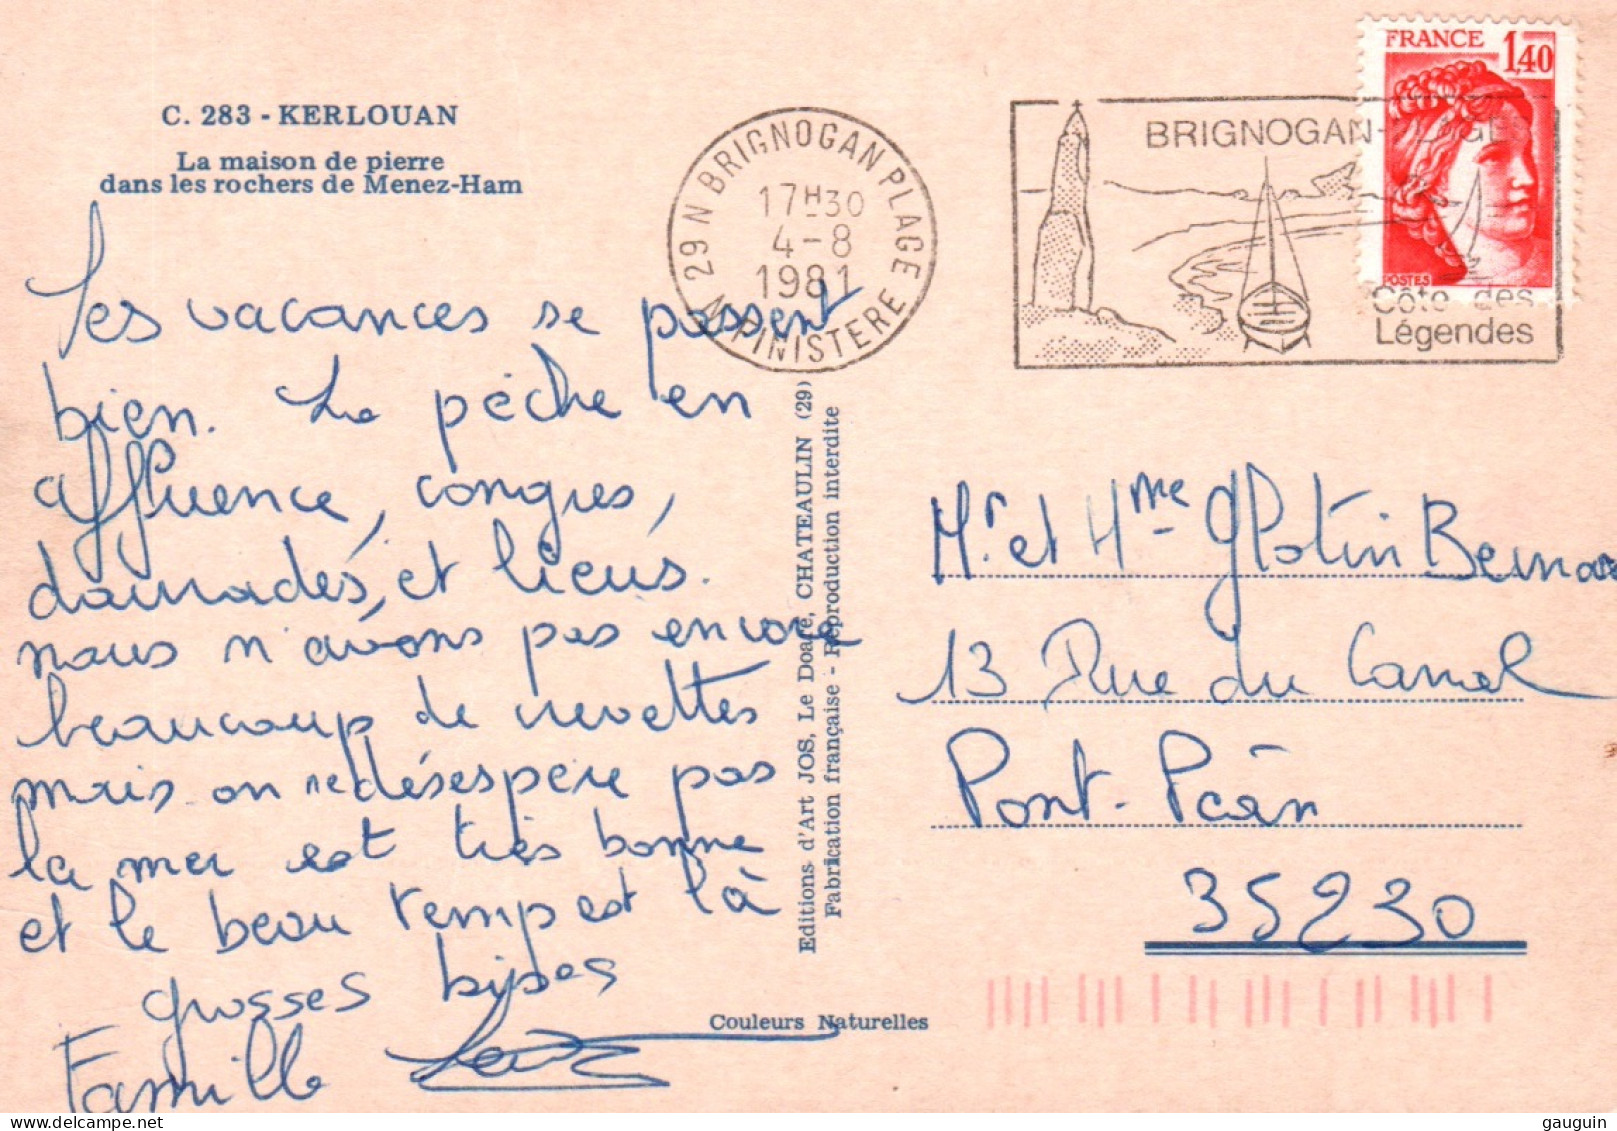 C. 283 - KERLOUAN
La maison de pierre
dans les rochers de Menez-Ham
les vacances se passent
bien. La pêche en
affluence, congres,
daurades, et lieus.
nous n'avons pas encore
beaucoup de crevettes
mais on ne désespère pas
la mer est très bonne
et le beau temps est là
grosses bises
Famille
29 N BRIGNOGAN PLAGE
17H30
4-8
1981
N. FINISTERE
BRIGNOGAN-PLAGE
Côte des
Légendes
FRANCE 1,40
POSTES
Editions d'Art JOS, Le Doaré, CHATEAULIN (29)
Fabrication française - Reproduction interdite
Couleurs Naturelles
Mr et Mme Glotin Bernar
13 Rue du Canal
Pont-Péan
35230
gauguin